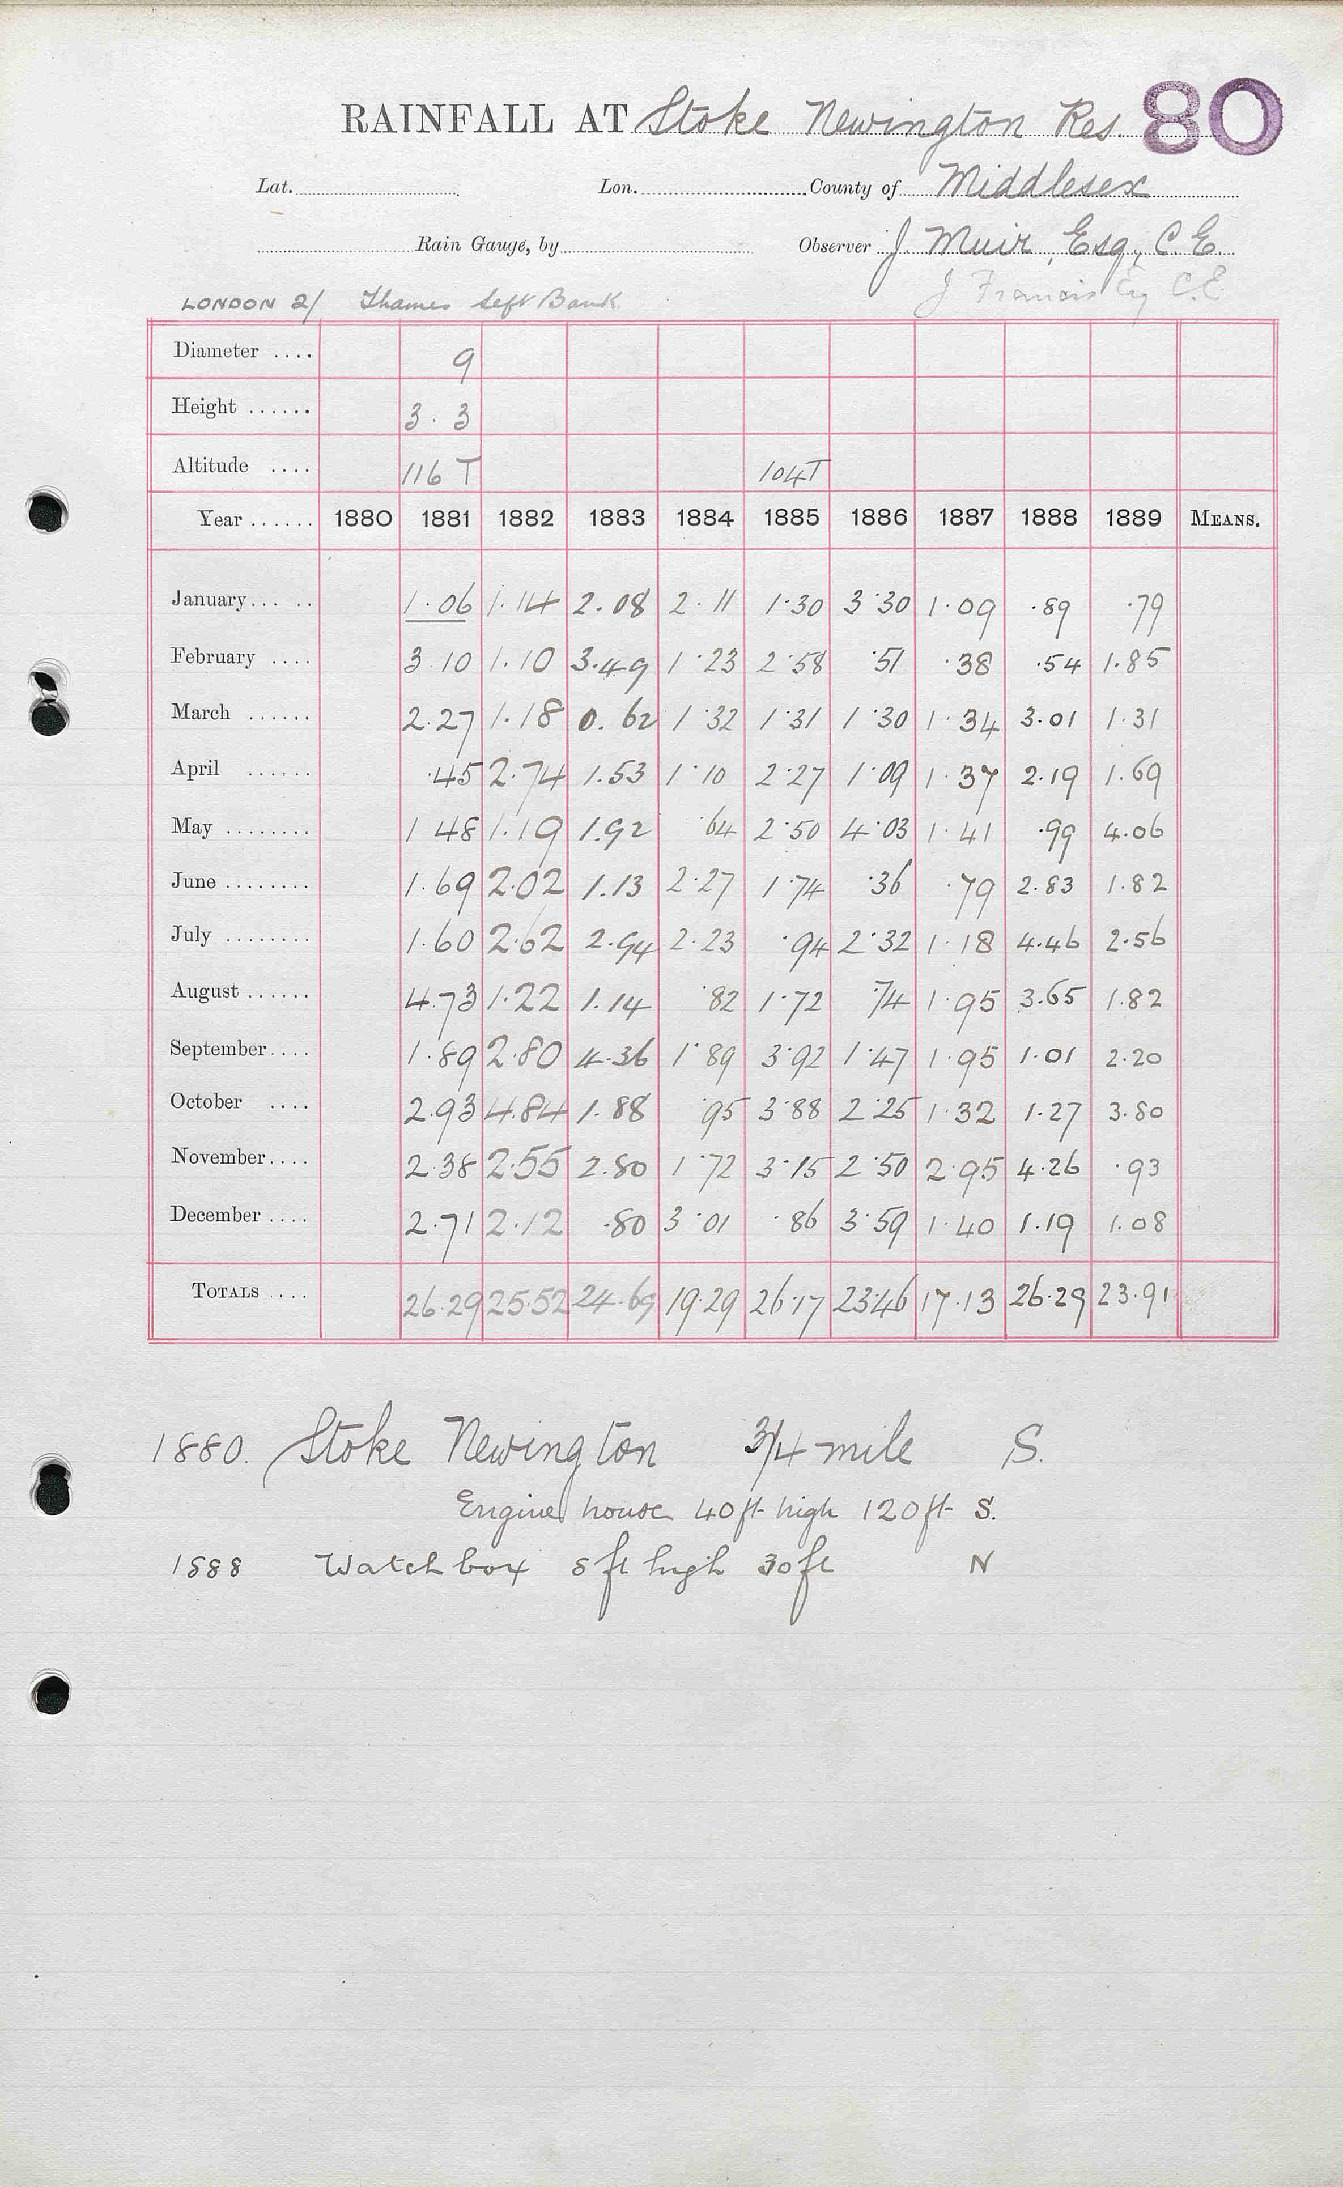 80
RAINFALL AT Stoke Newington Res.
Lat. Lon. County of Middlesex
Rain Gauge, by Observer J Muir, Esq., C.E.
J Francis Esq C.E
LONDON 2/ Thames Left Bank
Diameter .... 9
Height ...... 3. 3
Altitude .... 116 T 104T
Year ...... 1880 1881 1882 1883 1884 1885 1886 1887 1888 1889 MEANS.
January... .. 1.06 1.14 2.08 2.11 1.30 3.30 1.09 .89 .79
February .... 3.10 1.10 3.49 1.23 2.58 .51 .38 .54 1.85
March ...... 2.27 1.18 0.62 1.32 1.31 1.30 1.34 3.01 1.31
April ...... .45 2.74 1.53 1.10 2.27 1.09 1.37 2.19 1.69
May ........ 1.48 1.19 1.92 .64 2.50 4.03 1.41 .99 4.06
June ........ 1.69 2.02 1.13 2.27 1.74 .36 .79 2.83 1.82
July ........ 1.60 2.62 2.94 2.23 .94 2.32 1.18 4.46 2.56
August ...... 4.73 1.22 1.14 .82 1.72 .74 1.95 3.65 1.82
September.... 1.89 2.80 4.36 1.89 3.92 1.47 1.95 1.01 2.20
October .... 2.93 4.84 1.88 .95 3.88 2.25 1.32 1.27 3.80
November.... 2.38 2.55 2.80 1.72 3.15 2.50 2.95 4.26 .93
December .... 2.71 2.12 .80 3.01 .86 3.59 1.40 1.19 1.08
TOTALS .... 26.29 25.52 24.69 19.29 26.17 23.46 17.13 26.29 23.91
1880. Stoke Newington 3/4 mile S.
Engine house 40ft high 120ft S.
1888 Watch box 8 ft high 30ft N